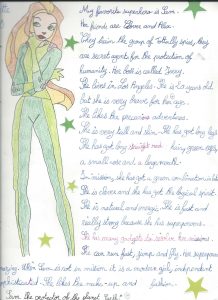 My favorite superhero is Sam.
Her friends are Clover and Alex.
They form the group of Totally spies, they
are secret agent for the protection of
humanity. Her boss is called Jerry.
She lives in Los Angeles. She is 20 years old
but she is very brave for her age.
She likes the precarious adventures.
She is very tall and slim. She has got long legs.
She has got long straight red hair, green eyes,
a small nose and a large mouth.
In mission, she has got a green combination in latex
She is clever and she has got the logical spirit.
She is natural and magic. She is fast and
really strong because she has superpowers.
She has many gadgets to service her missions.
She can run fast, jump and fly. Her superpower
When Sam is not in mission it is a modern girl, independent
sophisticated. She likes the make-up and fashion.
Sam the protector of the planet Earth"